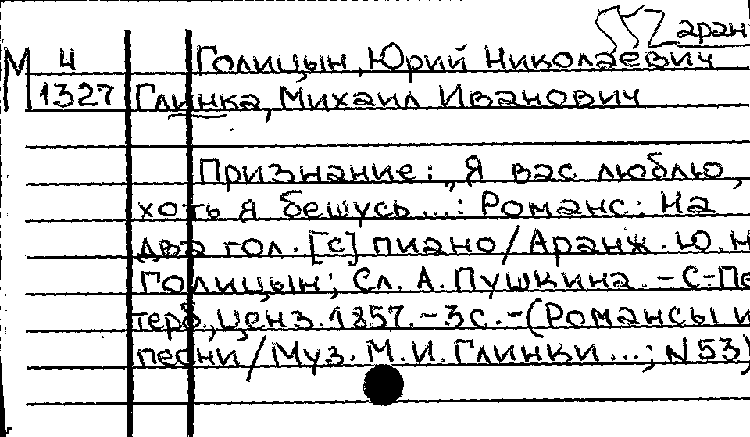 аран
М 4 Голицын, Юрий Николаевич
1327 Глинка, Михаил Иванович
Признание: „Я вас люблю,
хоть я бешусь...: Романс: На
два гол. [с] пиано/Аранж. Ю.Н
Голицын; Сл. А. Пушкина. - С-Пе
терб, ценз. 1857. - 3 с. - (Романсы и
песни/Муз. М.И. Глинки...; N 53)